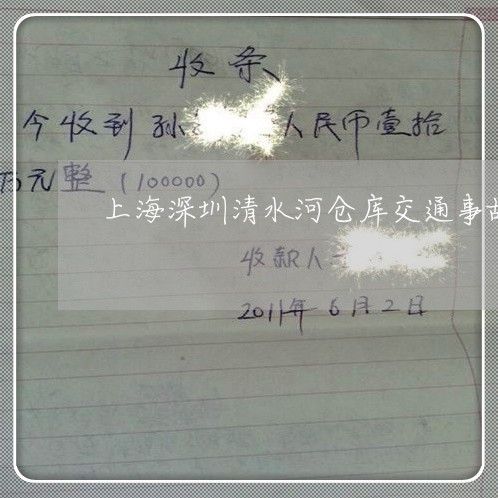 收条
今收到孙人民币壹拾
万元整（100000）
上海深圳清水河仓库交通事故
收款人
2011年6月2日